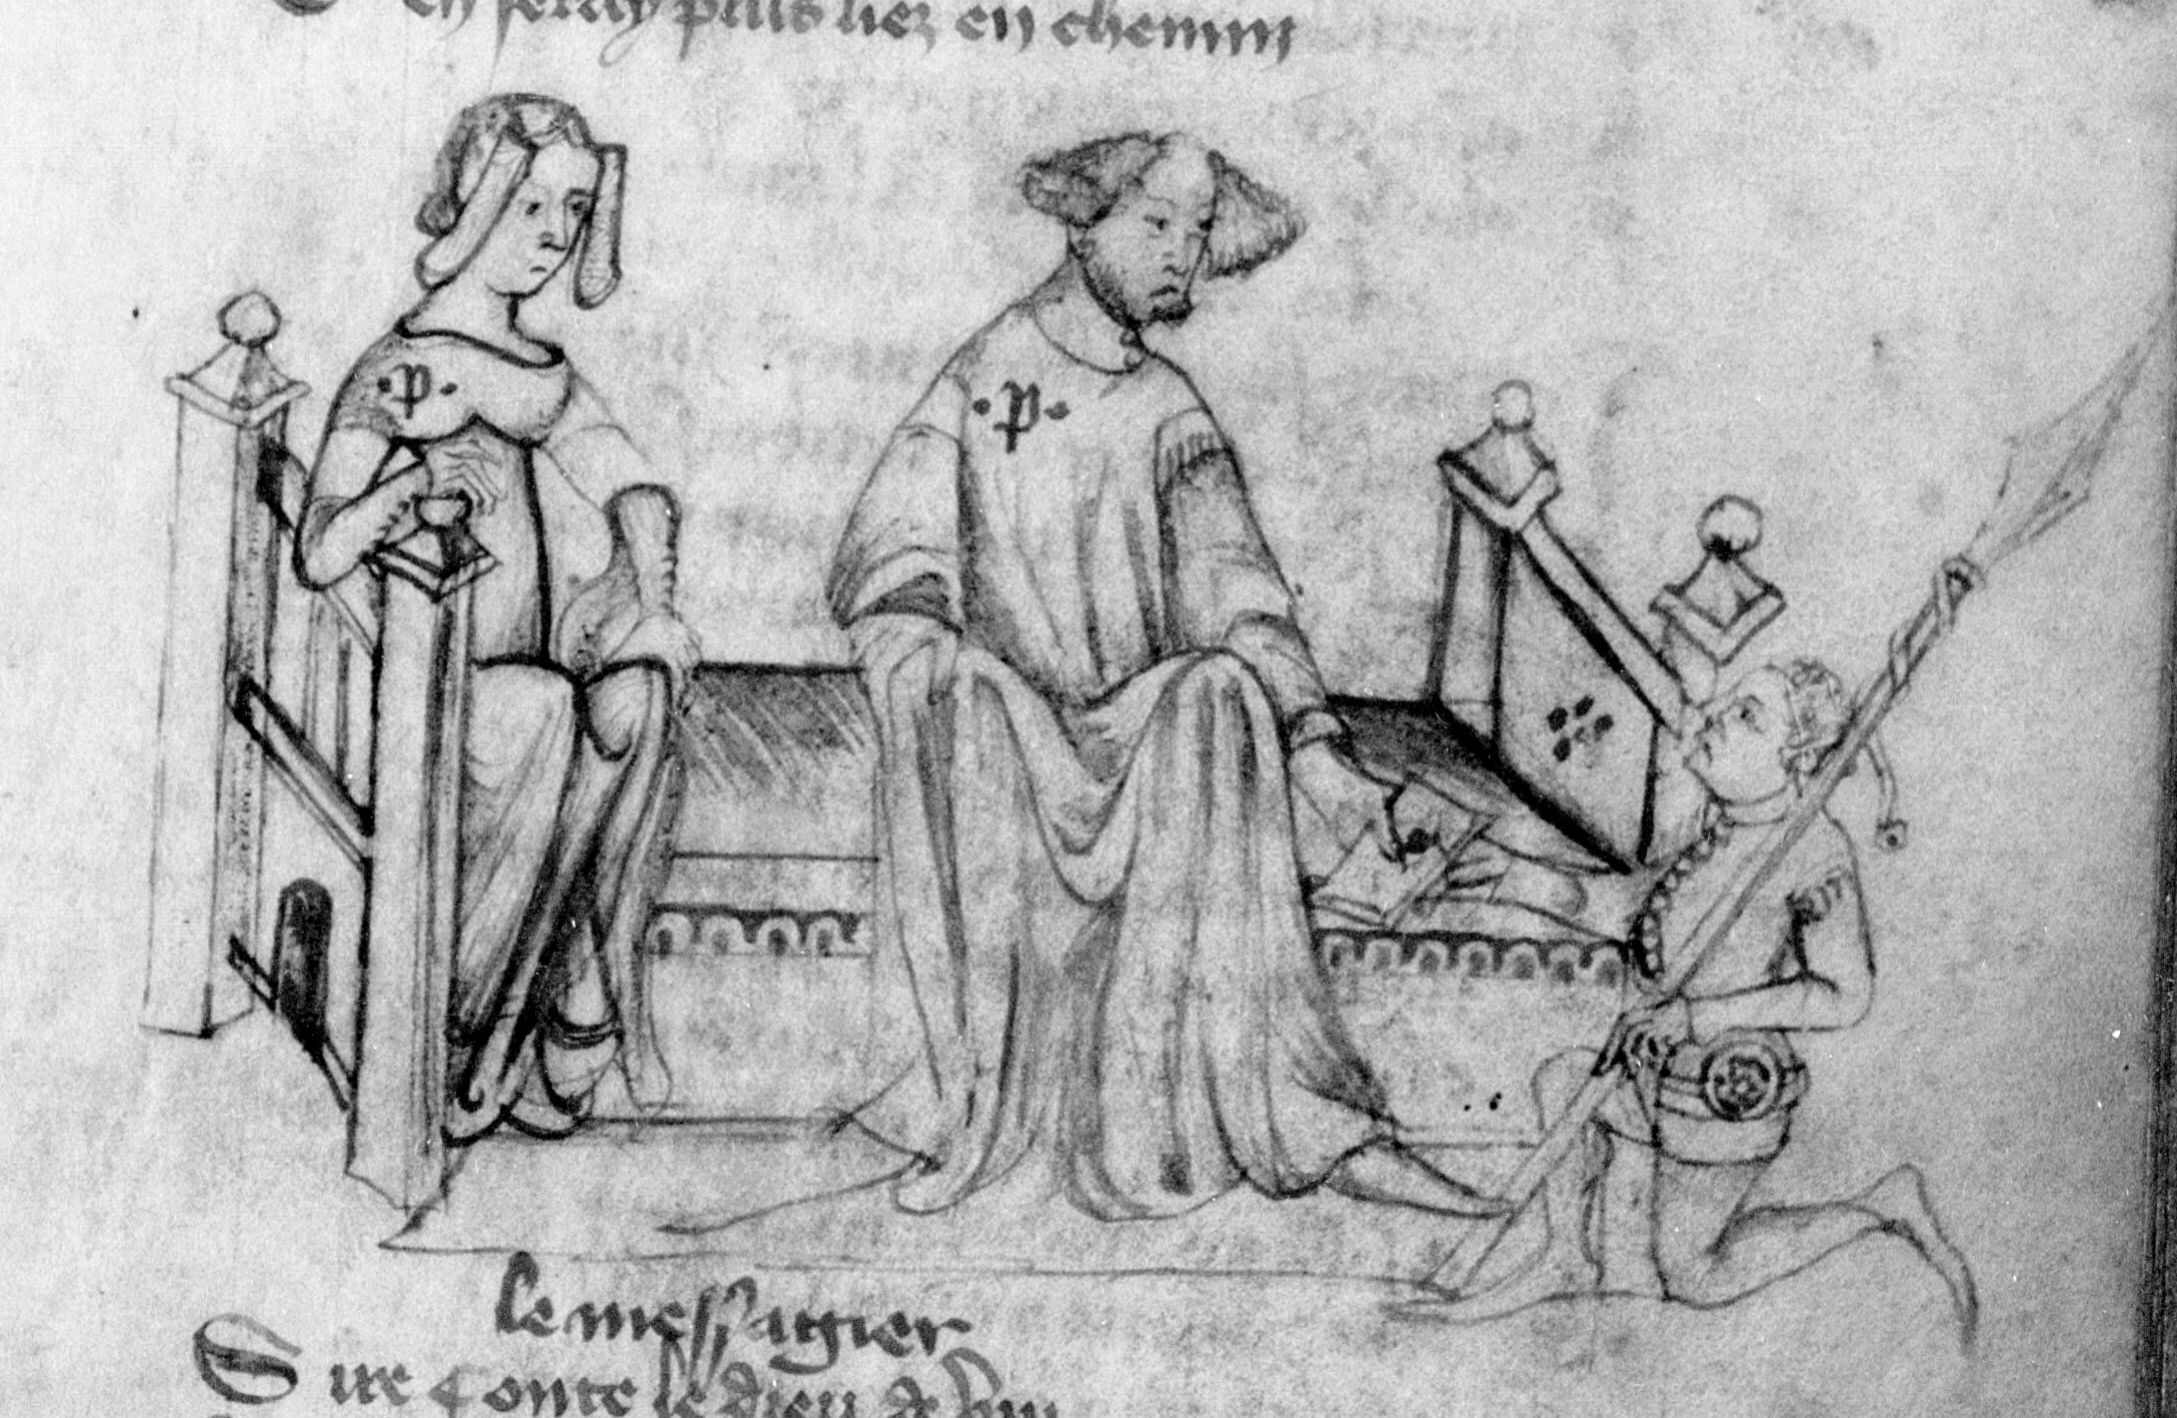 en seray plus liez en chemin
·p·
·p·
le messagier
Sire conte le dieu de